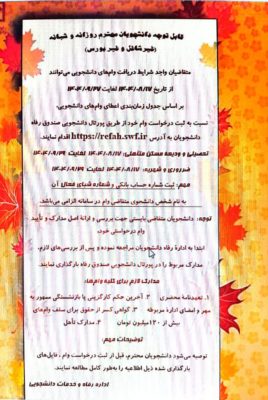 قابل توجه دانشجویان محترم روزانه و شبانه
(غیر شاغل و غیر بورس)
متقاضیان واجد شرایط دریافت وام‌های دانشجویی می‌توانند
از تاریخ ۱۴۰۴/۰۸/۱۷ لغایت ۱۴۰۴/۰۹/۲۷
بر اساس جدول زمان‌بندی اعطای وام‌های دانشجویی:
نسبت به ثبت درخواست وام خود از طریق پورتال دانشجویی صندوق رفاه
دانشجویان به آدرس https://refah.swf.ir اقدام نمایند.
تحصیلی و ودیعه مسکن متاهلی: ۱۴۰۴/۰۸/۱۷ لغایت
ضروری و شهریه: ۱۴۰۴/۰۸/۱۷ لغایت ۱۴۰۴/۰۹/۲۹
مهم: ثبت شماره حساب بانکی و شماره شبای فعال آن
به نام شخص دانشجوی متقاضی وام در سامانه الزامی می‌باشد.
توجه: دانشجویان متقاضی بایستی جهت بررسی و ارائۀ اصل مدارک و تأیید
وام درخواستی خود،
ابتدا به ادارۀ رفاه دانشجویان مراجعه نموده و پس از بررسی‌های لازم،
مدارک مربوط را در پورتال دانشجویی صندوق رفاه بارگذاری نمایند.
مدارک لازم برای کلیه وام‌ها:
۱. تعهدنامۀ محضری ۲. آخرین حکم کارگزینی یا بازنشستگی ممهور به
مهر و امضای اداره مربوطه ۳. گواهی کسر از حقوق برای سقف وام‌های
بیش از ۱۲۰ میلیون تومان ۴. مدارک تأهل
توضیحات مهم:
توصیه می‌شود دانشجویان محترم، قبل از ثبت درخواست وام، فایل‌های
بارگذاری شده ذیل اطلاعیه را به‌طور کامل مطالعه نمایند.
اداره رفاه و خدمات دانشجویی